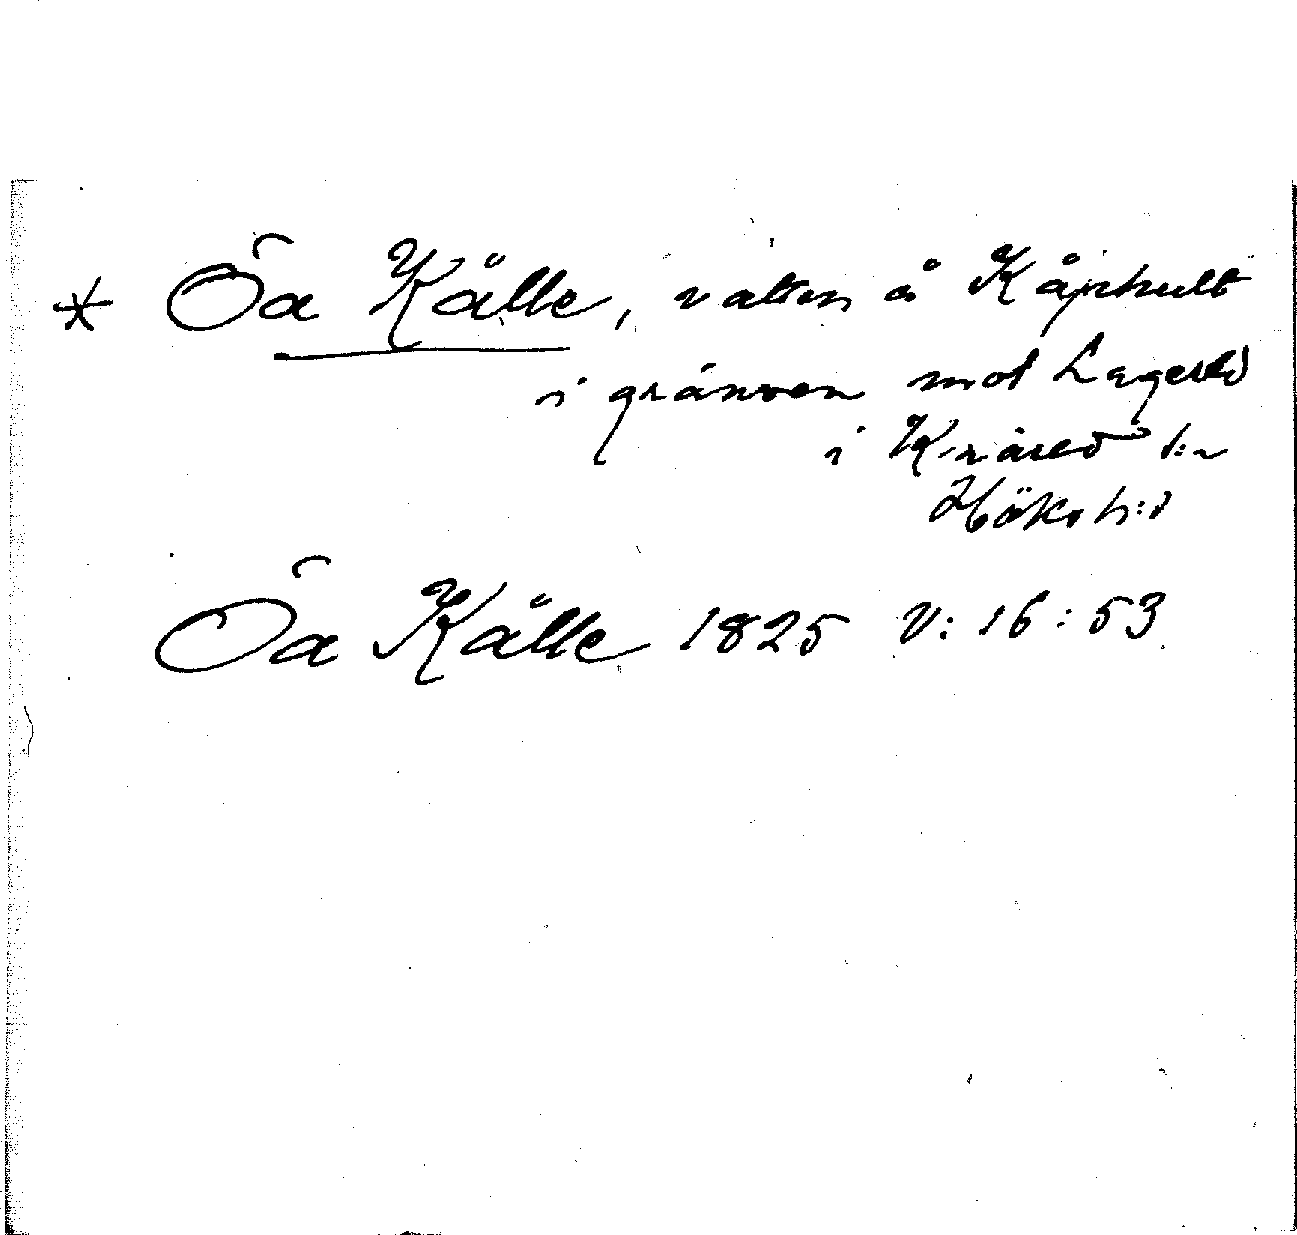 * Öa Källe, vatten å Kåphult
i gränsen mot Lagered
i Knäred s:n
Höks h:d
Öa Källe 1825 V: 16:53